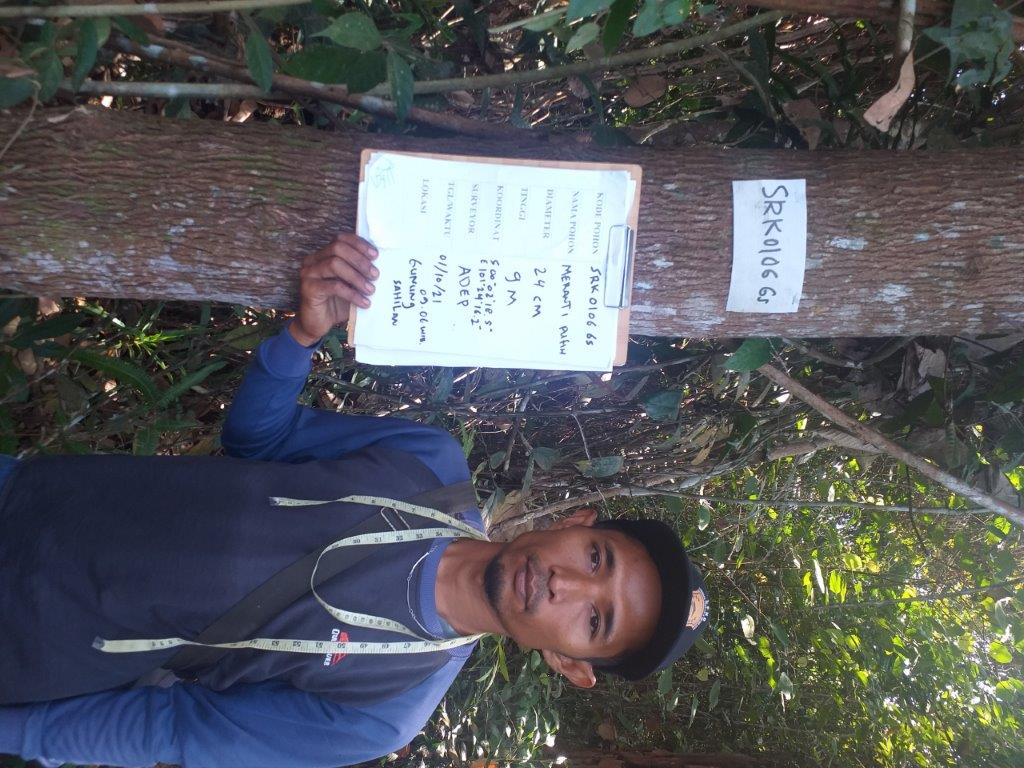 SRK0106 Gs
KODE POHON SRK 0106 Gs
NAMA POHON MERANTI PUTIH
DIAMETER 24 CM
TINGGI 9 M
KOORDINAT S 00°02'18.5"
E 101°24'16.2"
SURVEYOR ADEP
TGL/WAKTU 01/10/21
09.06 WIB.
LOKASI GUNUNG
SAHILAN